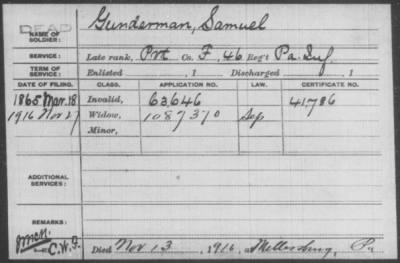 DEAD
NAME OF SOLDIER: Gunderman, Samuel
SERVICE: Late rank, Pvt Co. F, 46 Reg't Pa. Inf.
TERM OF SERVICE: Enlisted , 1 Discharged , 1
DATE OF FILING. CLASS. APPLICATION NO. LAW. CERTIFICATE NO.
1865 Mar. 18 Invalid, 63,646 41786
1916 Nov 27 Widow, 1087370 Sep
Minor,
ADDITIONAL SERVICES:
REMARKS:
C.W.G.
Died Nov 13, 1916, at Millersburg, Pa